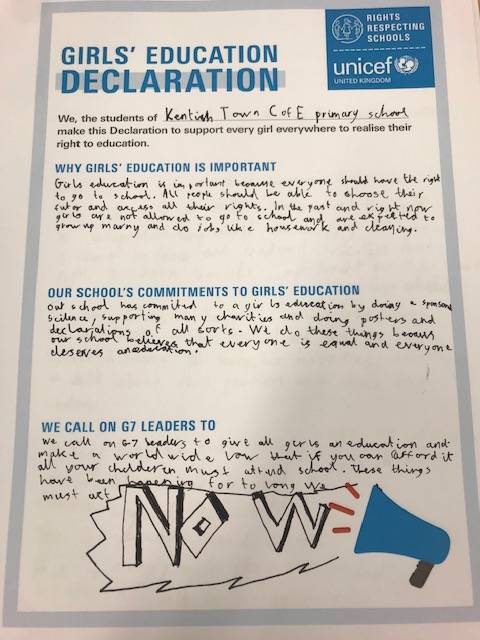 RIGHTS
RESPECTING
SCHOOLS
unicef
UNITED KINGDOM
GIRLS' EDUCATION
DECLARATION
We, the students of Kentish Town CofE primary school
make this Declaration to support every girl everywhere to realise their
right to education.
WHY GIRLS' EDUCATION IS IMPORTANT
Girls education is important because everyone should have the right
to go to school. All people should be able to choose their
futor and access all their rights. In the past and right now
girls are not allowed to go to school and are expected to
grow up marry and do jobs like housework and cleaning.
OUR SCHOOL'S COMMITMENTS TO GIRLS' EDUCATION
Our school has commited to a girls education by doing a sponserd
science, supporting many charities and doing posters and
declarations of all sorts. We do these things becaus
our school believes that everyone is equal and everyone
deserves an education.
WE CALL ON G7 LEADERS TO
We call on G7 leaders to give all girls an education and
make a world wide law that if you can afford it
all your childeren must attend school. These things
have been happening for to long we
must act
NOW